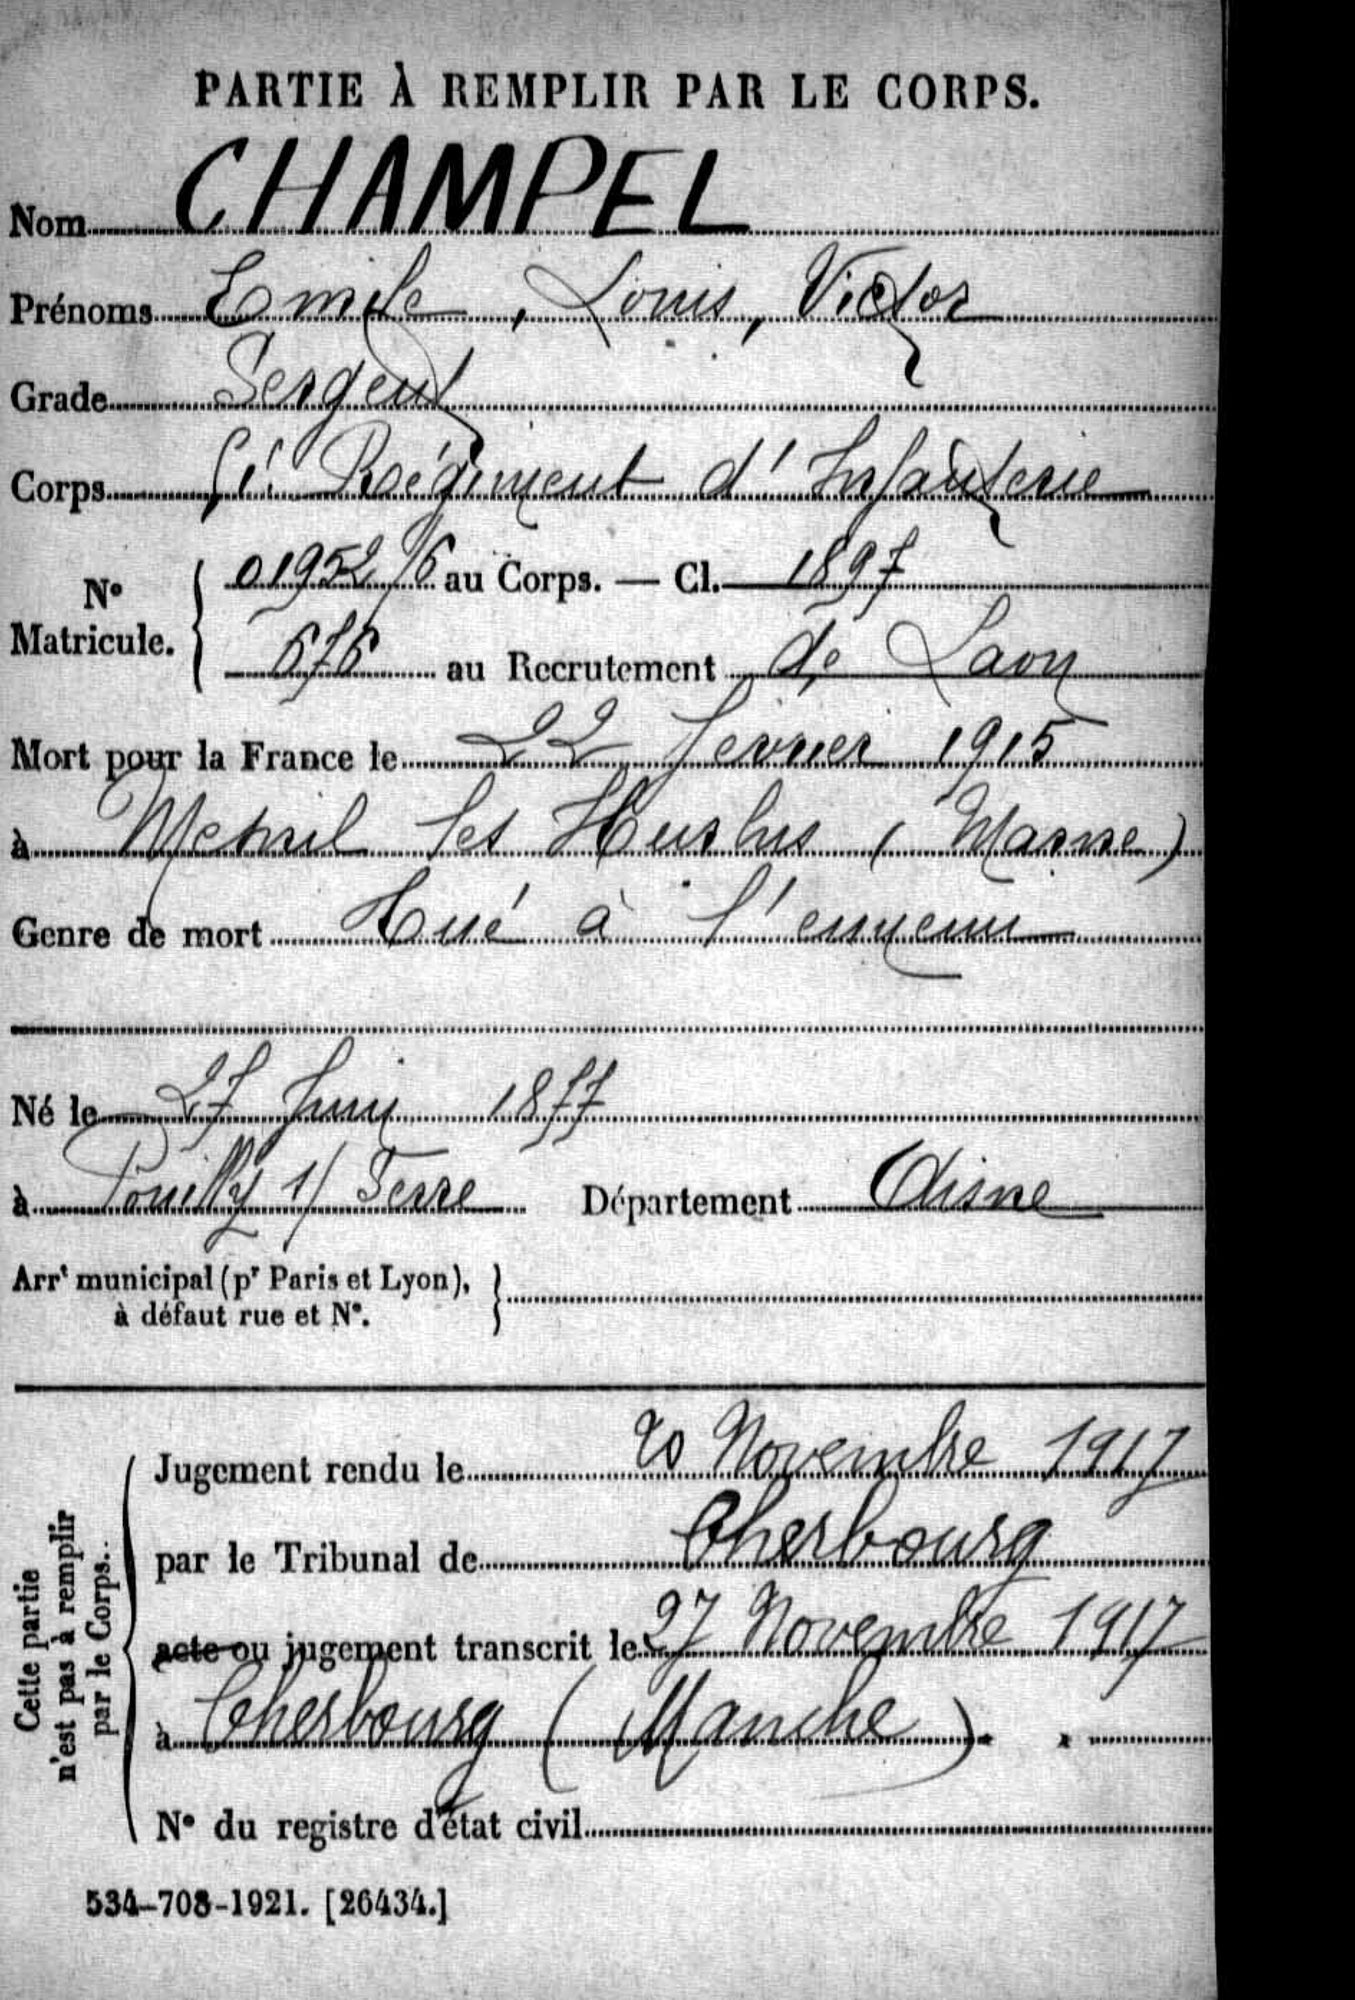 PARTIE À REMPLIR PAR LE CORPS.
Nom CHAMPEL
Prénoms Emile, Louis, Victor
Grade Sergent
Corps Régiment d'Infanterie
N° Matricule. 01952 au Corps. — Cl. 1897
676 au Recrutement de Laon
Mort pour la France le 22 février 1915
à Mesnil les Hurlus (Marne)
Genre de mort Tué à l'ennemi
Né le 27 Juin 1877
à Pouilly s/ Serre Département Aisne
Arrt municipal (pr Paris et Lyon),
à défaut rue et N°.
Cette partie
n'est pas à remplir
par le Corps.
Jugement rendu le 20 Novembre 1917
par le Tribunal de Cherbourg
acte ou jugement transcrit le 27 Novembre 1917
à Cherbourg (Manche)
N° du registre d'état civil
534-708-1921. [26434.]